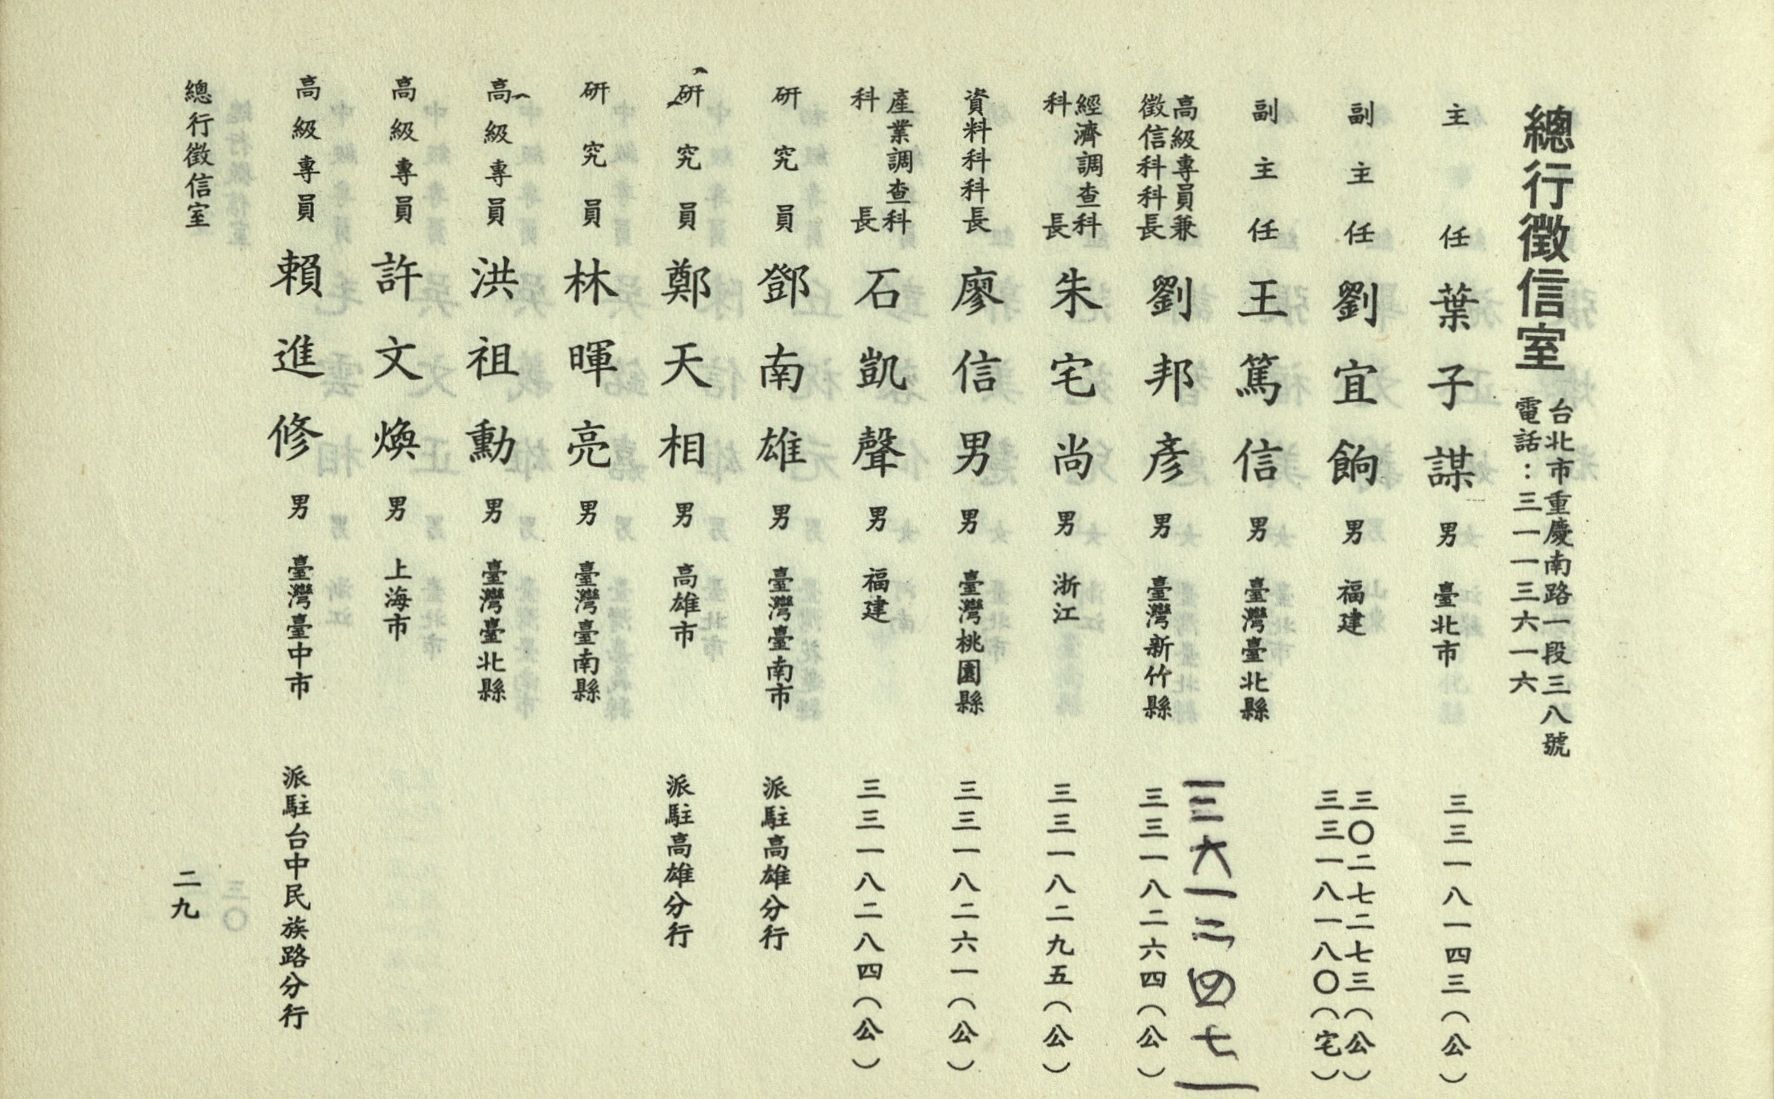 總行徵信室
台北市重慶南路一段三八號
電話：三一一三六一六
主任 葉子謀 男 臺北市 三三一八一四三（公）
副主任 劉宜餉 男 福建 三〇二七二七三（公）
三三一八一八〇（宅）
副主任 王篤信 男 臺灣臺北縣
三六一二四七一
高級專員兼
徵信科科長 劉邦彥 男 臺灣新竹縣 三三一八二六四（公）
經濟調查科
科長 朱宅尚 男 浙江 三三一八二九五（公）
資料科科長 廖信男 男 臺灣桃園縣 三三一八二六一（公）
產業調查科
科長 石凱聲 男 福建 三三一八二八四（公）
研究員 鄧南雄 男 臺灣臺南市 派駐高雄分行
研究員 鄭天相 男 高雄市 派駐高雄分行
研究員 林暉亮 男 臺灣臺南縣
高級專員 洪祖勳 男 臺灣臺北縣
高級專員 許文煥 男 上海市
高級專員 賴進修 男 臺灣臺中市 派駐台中民族路分行
總行徵信室
二九